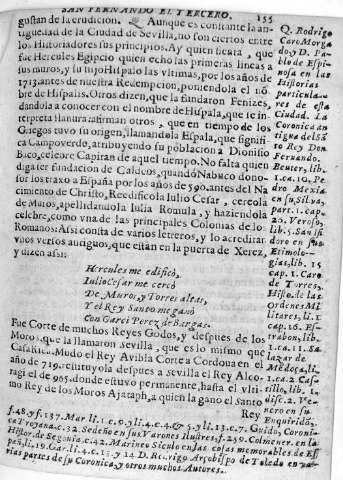 SAN FERNANDO EL TERCERO. 155
gustan de la erudicion. Aunque es constante la an-
tiguedad de la Ciudad de Sevilla, no son ciertos entre
los Historiadores sus principios. Ay quien sienta, que
fue Hercules Egipcio quien echò las primeras lineas a
sus muros, y su hijo Hispalo las ultimas, por los años de
1713. antes de nuestra Redempcion, poniendola el no-
bre de Hispalis. Otros dizen, que la fundaron Fenizes,
dandola a conocer con el nombre de Hispala, que se in-
terpreta llanura: afirman otros, que en tiempo de los
Griegos tuvo su origen, llamandola Espala, que signifi-
ca Campoverde, atribuyendo su poblacion a Dionisio
Baco, celebre Capitan de aquel tiempo. No falta quien
diga ser fundacion de Caldeos, quando Nabuco dono-
sor los traxo a España por los años de 590. antes del Na
cimiento de Christo, Reedificola Julio Cesar, cercola
de Muros, apellidandola Iulia Romula, y haziendola
celebre, como vna de las principales Colonias de los
Romanos: Assi consta de varios letreros, y lo acreditan
vnos versos antiguos, que estàn en la puerta de Xerez,
y dizen assi:
Hercules me edificò,
Iulio Cesar me cercò
De Muros, y Torres altas,
Y el Rey Santo me ganò
Con Garci Perez de Bargas.
Fue Corte de muchos Reyes Godos, y despues de los
Moros, que la llamaron Sevilla, que es lo mismo que
Casa Rica. Mudò el Rey Avibh Corte a Cordova en el
año de 719. restituyola despues a Sevilla el Rey Alco-
ragi el de 965. donde estuvo permanente, hasta el vlti-
mo Rey de los Moros Ajataph, a quien la ganò el Santo
Rey
Q. Rodrigo
Caro Morga
do, y D. Pa-
blo de Espi-
nosa en las
Historias
particula-
res de esta
Ciudad. La
Coronica an
tigua del Sã
to Rey Don
Fernando.
Beuter, lib.
1. ca. 10. Pe
dro Mexia
en su Silva,
part. 1. cap.
25. Veroso,
lib. 5. San Isi
doro en sus
Etimolo-
gias, lib. 15
cap. 1. Caro
de Torres,
Hist. de las
Ordenes Mi
litares, li. 1
cap. 16. Es-
lib.
1. ca. 11. Sa
lazar de
Mēdoça, li.
1. ca. 2 Casi
lib. 10
disc. 2. Ve-
nero en su
Enquiridō,
f. 48. y f. 137. Mar li. 1. c. 9. y li. 4. c. 4. & 5. y li. 13. c. 7. Guido, Coroni-
ca Troyana. c. 32. Sedeño en sus Varones Ilustres, f. 250. Colmenar. en la
Histor. de Segovia c. 42. Marineo Siculo en las cosas memorables de Es-
pañ, li, 19. Gar. li. 4. c. 13. y 14 D. Rodrigo Arçobispo de Toledo en va-
rias partes de su Coronica, y otros muchos Autores.